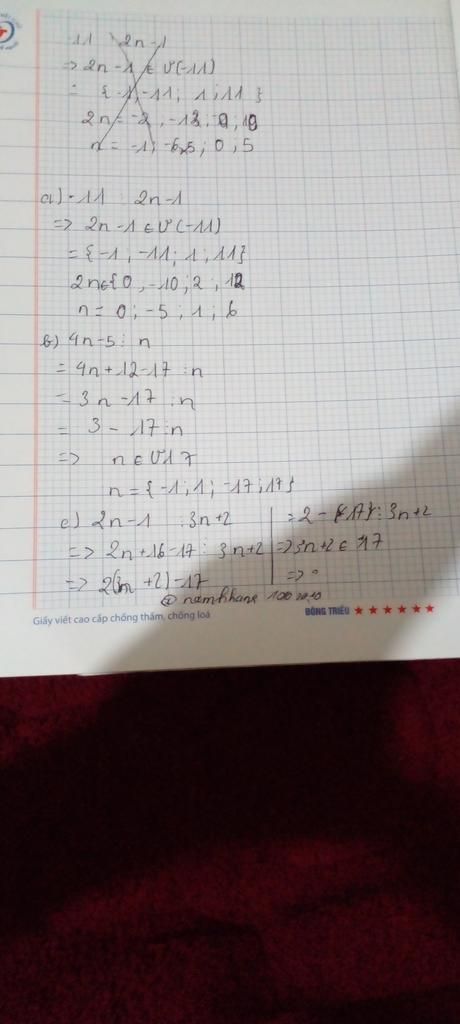 -11 2n-1
=> 2n-1 ∈ Ư(-11)
= {-1; -11; 1; 11}
2n = -2, -12, 0, 10
n = -1; -6,5; 0; 5
a) -11 : 2n-1
=> 2n-1 ∈ Ư(-11)
= {-1; -11; 1; 11}
2n∈{0, -10; 2; 12
n = 0; -5; 1; 6
b) 4n-5 ⋮ n
= 4n+12-17 ⋮n
= 3n -17 ⋮n
= 3 - 17 ⋮n
=> n ∈ Ư17
n = {-1; 1; -17; 17}
c) 2n-1 ⋮ 3n+2
=> 2n+16-17 ⋮ 3n+2
=> 2(3n+2)-17
= 2-{17} ⋮ 3n+2
=> 3n+2 ∈ 17
=>
Giấy viết cao cấp chống thấm, chống loá
ĐÔNG TRIỀU ★ ★ ★ ★ ★ ★